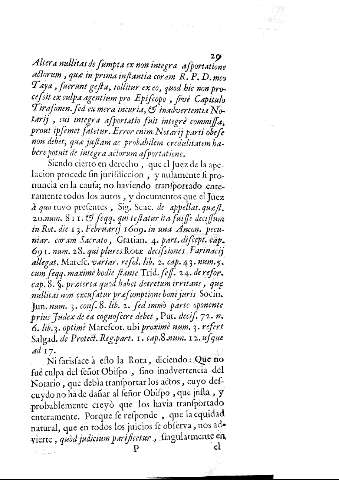 29
Altera nullitas desumpta ex non integra asportatione
actorum, quæ in prima instantia coram R. P. D. meo
Taya, fuerunt gesta, tollitur ex eo, quod hic non pro-
cessit ex culpa agentium pro Episcopo, sivè Capitulo
Tirasonen. sed ex mera incuria, & inadvertentia No-
tarij, cui integra asportatio fuit integrè commissa,
prout ipsemet fatetur. Error enim Notarij parti obesse
non debet, quæ justam ac probabilem credulitatem ha-
bere potuit de integra actorum asportatione.
Siendo cierto en derecho, que el Juez de la ape-
lacion procede sin jurisdiccion, y nulamente si pro-
nuncia en la causa; no haviendo transportado ente-
ramente todos los autos, y documentos que el Juez
à quo tuvo presentes, Sig. Scac. de appellat. quæst.
20. num. 811. & seqq. qui testatur ita fuisse decissum
in Rot. die 13. Februarij 1609. in una Ancon. pecu-
niar. coram Sacrato, Gratian. 4. part. discept. cap.
691. num. 28. qui plures Rotæ decisiones Farinacij
allegat. Maresc. variar. resol. lib. 2. cap. 43. num. 5.
cum seqq. maximè hodie stante Trid. sess. 24. de refor.
cap. 8. §. præterea quod habet decretum irritans, quæ
nullitas non excusatur præsumptione boni juris Socin.
Jun. num. 3. cons. 8. lib. 2. sed immò parte oponente
prius Judex de ea cognoscere debet, Put. decis. 72. n.
6. lib. 3. optimè Marescot. ubi proximè num. 3. refert
Salgad. de Protect. Reg. part. 1. cap. 8. num. 12. usque
ad 17.
Ni satisface à esto la Rota, diciendo: Que no
fuè culpa del señor Obispo, sino inadvertencia del
Notario, que debia transportar los actos, cuyo des-
cuydo no ha de dañar al señor Obispo, que justa, y
probablemente creyò que los havia transportado
enteramente. Porque se responde, que la equidad
natural, que en todos los juicios se observa, nos ad-
vierte, quòd judicium parificetur, singularmente en
P
el